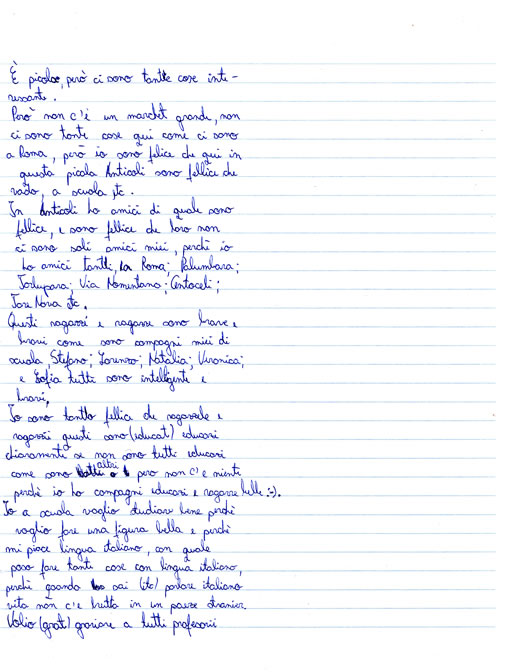 È picola, però ci sono tantte cose inte-
ressante.
Però non c'è un marchet grande, non
ci sono tante cose qui come ci sono
a Roma, però io sono felice che qui in
questa picola Anticoli sono fellice che
vado, a scuola etc.
In Anticoli ho amici di quale sono
fellice, e sono fellice che loro non
ci sono soli amici miei, perchè io
ho amici tantti, la Roma; Palumbara;
Torlupara; Via Nomentana; Centoceli;
Tore Nova etc.
Questi ragazzi e ragazze sono brave e
bravi come sono compagni miei di
scuola, Stefano; Lorenzo; Natalia; Veronica;
e Sofia tutti sono intelligente e
bravi,
Io sono tantto fellice che ragazzele e
ragazzii questi sono (educat) educari
chiaramenti se non sono tutti educari
come sono altri pero non c'e niente
perchè io ho compagni educari e ragazze belle :-).
Io a scuola voglio studiare bene perchè
voglio fare una figura bella e perchè
mi piace lingua italiano, con quale
poso fare tanti cose con lingua italiano,
perchi quando sai (ito) parlare italiano
vita non c'e brutta in un paese stranier.
Volio (grat) graziare a tutti profesorii